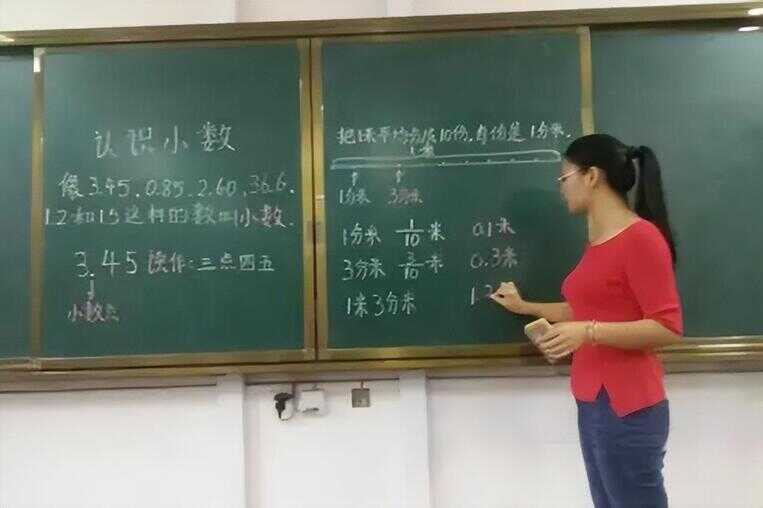 认识小数
像3.45、0.85、2.60、36.6、
1.2和1.5这样的数叫小数.
3.45 读作:三点四五
小数点
把1米平均分成10份,每份是1分米.
1米
1分米 3分米
1分米 1/10米 0.1米
3分米 3/10米 0.3米
1米3分米 1.3